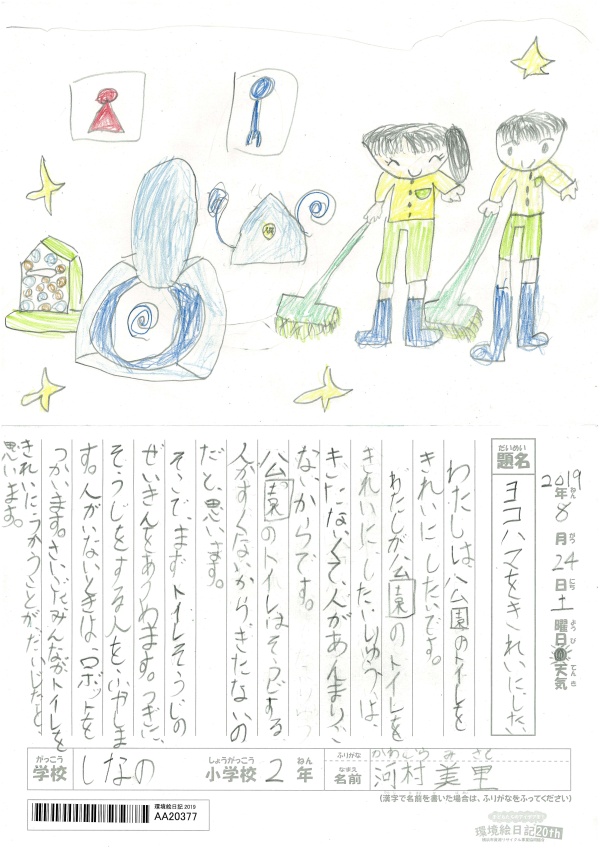 2019年8月24日土曜日 天気
ねん がつ にち ようび てんき
だいめい
題名
ヨコハマをきれいにしたい
わたしは、公園のトイレを
きれいにしたいです。
わたしが、公園のトイレを
きれいにしたいりゆうは、
きたないくて、人があんまりい
ないからです。
公園のトイレはそうじする
人がすくないから、きたないの
だと、思います。
そこで、まず、トイレそうじの
ぜいきんをあつめます。つぎに、
そうじをする人を、ふやしま
す。人がいないときは、ロボットを
つかいます。さいごに、みんなが、トイレを
きれいに、つかうことが、だいじだと、
思います。
がっこう しょうがっこう ねん
学校 しなの 小学校 2年
ふりがな かわむら みさと
なまえ
名前 河村 美里
(漢字で名前を書いた場合は、ふりがなをふってください)
環境絵日記2019
AA20377
環境絵日記20th